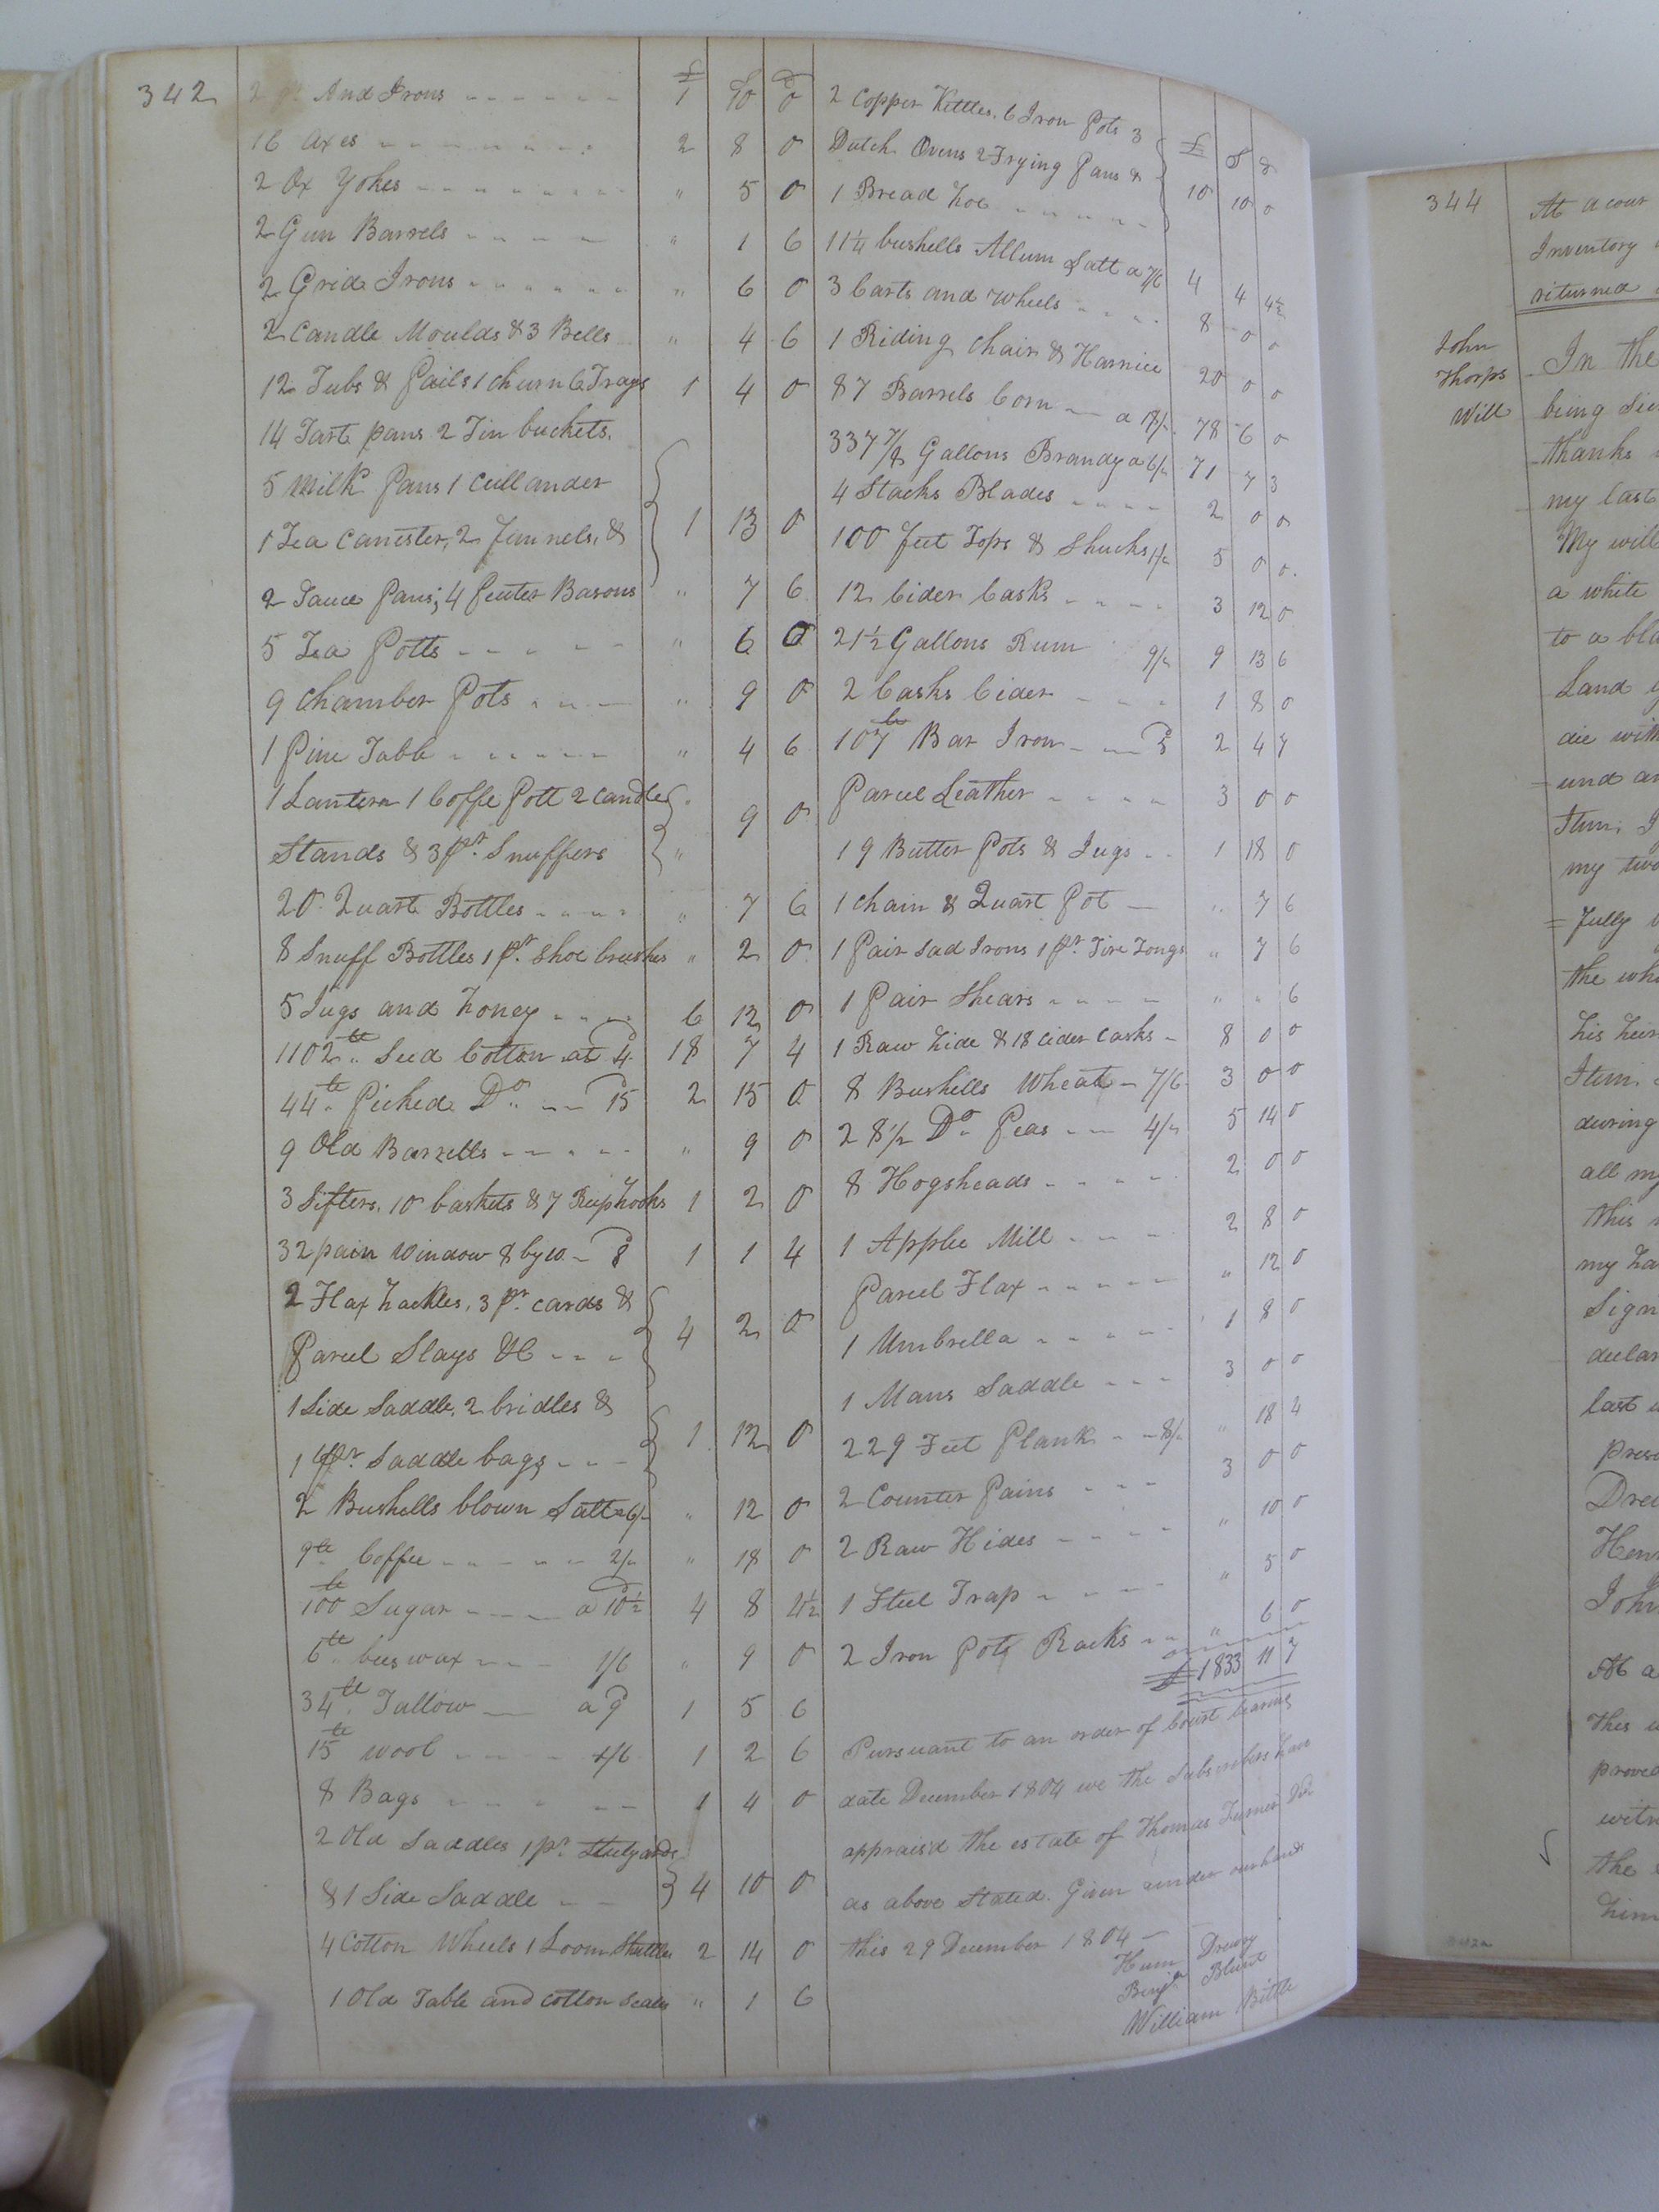 342
£ S D
2 pr And Irons - - - - - - 1 10 0
16 Axes - - - - - - - 2 8 0
2 Ox Yokes - - - - - - - " 5 0
2 Gun Barrels - - - - " 1 6
2 Grid Irons - - - - - - " 6 0
2 Candle Moulds & 3 Bells " 4 6
12 Tubs & Pails 1 churn 6 Trays 1 4 0
14 Tart pans 2 Tin buckets.
5 Milk Pans 1 Cullander
1 Tea Canester, 2 funnels, & 1 13 0
2 Sauce Pans; 4 Peuter Basons " 7 6
5 Tea Potts - - - - - " 6 0
9 Chamber Pots - - - " 9 0
1 Pine Table - - - - - " 4 6
1 Lantern 1 Coffe Pott 2 candle "
Stands & 3 pr. Snuffers " 9 0
20 Quart Bottles - - - - " 7 6
8 Snuff Bottles 1 pr. Shoe brushes " 2 0
5 Jugs and honey - - - - 6 12 0
1102 lb. Seed Cotton at 4d 18 7 4
44 lb. Picked Do. - - 15d 2 15 0
9 Old Barrells - - - - - " 9 0
3 Sifters, 10 baskets & 7 Reaphooks 1 2 0
32 pain Window 8 by 10 - 8d 1 1 4
2 Flax hackles, 3 pr. cards &
Parcel Slays &C - - - 4 2 0
1 Side Saddle, 2 bridles &
1 pr. Saddle bags - - - 1 12 0
2 Bushells blown Salt a 6/- " 12 0
9 lb Coffee - - - - - 2/- " 18 0
100 lb Sugar - - - - a 10½d 4 8 4½
6 lb. bees wax - - - 1/6 " 9 0
34 lb. Tallow - a 9d 1 5 6
15 lb wool - - - - 1/6 1 2 6
8 Bags - - - - - 1 4 0
2 Old Saddles 1 pr. Stulyards
& 1 Side Saddle - - 4 10 0
4 Cotton Wheels 1 Loom Shuttles 2 14 0
1 Old Table and cotton Scales " 1 6
£ S D
2 Copper Kittles, 6 Iron Pots 3
Dutch Ovens 2 Frying Pans &
1 Bread hoe - - - - - - 10 10 0
11¼ bushells Allum Salt a 7/6 4 4 4½
3 Carts and Wheels - - - - 8 0 0
1 Riding Chair & Harnice 20 0 0
87 Barrels Corn - a 18/- 78 6 0
337 7/8 Gallons Brandy a 6/- 71 7 3
4 Stacks Blades - - - - 2 0 0
100 feet Tops & Shucks 1/- 5 0 0.
12 Cider Casks - - - - 3 12 0
21½ Gallons Rum 9/- 9 13 6
2 Casks Cider - - - - 1 8 0
107 lb Bar Iron - - 5d 2 4 7
Parcel Leather - - - - 3 0 0
19 Butter Pots & Jugs - - 1 18 0
1 chain & Quart Pot - " 7 6
1 Pair Sad Irons 1 pr. Fire Tongs " 7 6
1 Pair Shears - - - - " " 6
1 Raw hide & 18 cider Casks - 8 0 0
8 Bushells Wheat - 7/6 3 0 0
28½ Do. Peas - - 4/- 5 14 0
8 Hogsheads - - - - - 2 0 0
1 Apple Mill - - - - 2 8 0
Parcel Flax - - - - - " 12 0
1 Umbrella - - - - - 1 8 0
1 Mans Saddle - - - 3 0 0
229 Feet Plank - - 8/- " 18 4
2 Counter Pains - - - 3 0 0
2 Raw Hides - - - - " 10 0
1 Steel Trap - - - - " 5 0
2 Iron Pots Racks - - " 6 0
£ 1833 11 7
Pursuant to an order of Court bearing
date December 1804 we the Subscribers have
appraisd the estate of Thomas Turner
as above Stated. Given under our hands
this 29 December 1804 -
Drewry
Benja. Blunt
William Bittle
344
At a cour
Inventory
returned
John
Thorps
Will
In the
being
thanks
my last
My will
a white
to a
Land
die with
- und
Item, I
my two
= fully
the
his heirs
Item.
during
all my
this
my
Sign
declar
last
prese
Drew
Hen
John
At a
This
proved
witn
the
him